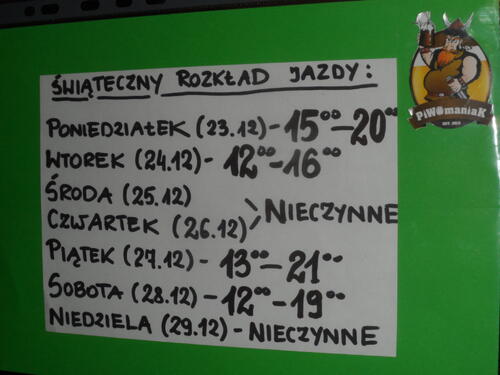 ŚWIĄTECZNY ROZKŁAD JAZDY:
PONIEDZIAŁEK (23.12) - 15⁰⁰-20⁰⁰
WTOREK (24.12) - 12⁰⁰-16⁰⁰
ŚRODA (25.12)
CZWARTEK (26.12) > NIECZYNNE
PIĄTEK (27.12) - 13⁰⁰-21⁰⁰
SOBOTA (28.12) - 12⁰⁰-19⁰⁰
NIEDZIELA (29.12) - NIECZYNNE
PiWOmaniaK